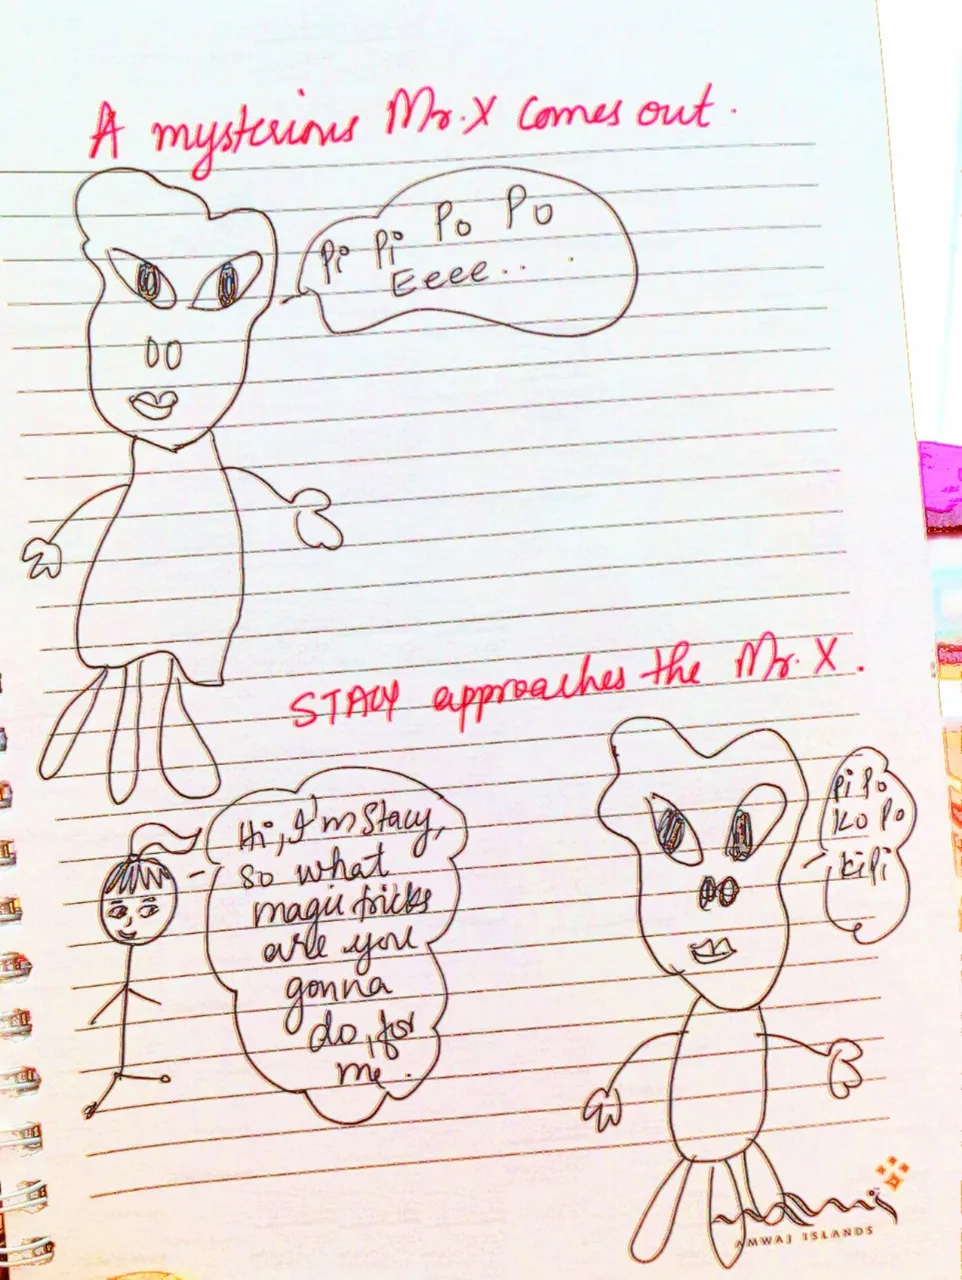 A mysterious Mr. X comes out.
Pi Pi Po Po
Eeee...
STACY approaches the Mr. X.
Hi, I'm Stacy,
so what
magic tricks
are you
gonna
do, for
me.
Pi Po
Ko Po
Kipi
AMWAJ ISLANDS